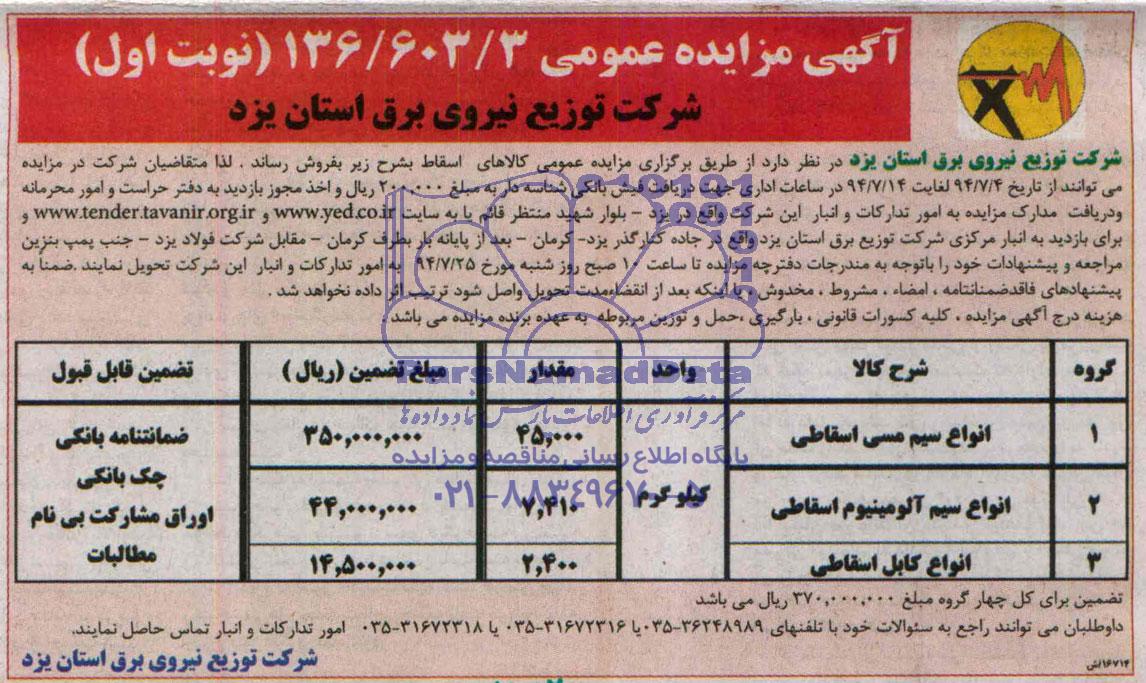 آگهی مزایده عمومی ۱۳۶/۶۰۳/۳ (نوبت اول)
شرکت توزیع نیروی برق استان یزد
شرکت توزیع نیروی برق استان یزد در نظر دارد از طریق برگزاری مزایده عمومی کالاهای اسقاط بشرح زیر بفروش رساند . لذا متقاضیان شرکت در مزایده
می توانند از تاریخ ۹۴/۷/۴ لغایت ۹۴/۷/۱۴ در ساعات اداری جهت دریافت فیش بانکی شناسه دار به مبلغ ۲۰۰,۰۰۰ ریال و اخذ مجوز بازدید به دفتر حراست و امور محرمانه
ودریافت مدارک مزایده به امور تدارکات و انبار این شرکت واقع در یزد - بلوار شهید منتظر قائم یا به سایت www.yed.co.ir و www.tender.tavanir.org.ir و
برای بازدید به انبار مرکزی شرکت توزیع برق استان یزد واقع در جاده کنارگذر یزد- کرمان - بعد از پایانه بار بطرف کرمان - مقابل شرکت فولاد یزد - جنب پمپ بنزین
مراجعه و پیشنهادات خود را باتوجه به مندرجات دفترچه مزایده تا ساعت ۱۰ صبح روز شنبه مورخ ۹۴/۷/۲۵ به امور تدارکات و انبار این شرکت تحویل نمایند .ضمناً به
پیشنهادهای فاقدضمانتنامه ، امضاء ، مشروط ، مخدوش ، یا اینکه بعد از انقضاءمدت تحویل واصل شود ترتیب اثر داده نخواهد شد .
هزینه درج آگهی مزایده ، کلیه کسورات قانونی ، بارگیری ،حمل و توزین مربوطه به عهده برنده مزایده می باشد .
گروه شرح کالا واحد مقدار مبلغ تضمین (ریال ) تضمین قابل قبول
۱ انواع سیم مسی اسقاطی کیلو گرم ۴۵,۰۰۰ ۳۵۰,۰۰۰,۰۰۰ ضمانتنامه بانکی
چک بانکی
۲ انواع سیم آلومینیوم اسقاطی ۷,۴۱۰ ۴۴,۰۰۰,۰۰۰ اوراق مشارکت بی نام
مطالبات
۳ انواع کابل اسقاطی ۲,۴۰۰ ۱۴,۵۰۰,۰۰۰
تضمین برای کل چهار گروه مبلغ ۳۷۰,۰۰۰,۰۰۰ ریال می باشد
داوطلبان می توانند راجع به سئوالات خود با تلفنهای ۳۶۲۴۸۹۸۹-۰۳۵ یا ۳۱۶۷۲۳۱۶-۰۳۵ یا ۳۱۶۷۲۳۱۸-۰۳۵ امور تدارکات و انبار تماس حاصل نمایند.
شرکت توزیع نیروی برق استان یزد
۱۶۷۱۴/ش
ParsNamadData
مرکز فرآوری اطلاعات پارس نماد داده ها
پایگاه اطلاع رسانی مناقصه و مزایده
۰۲۱-۸۸۳۴۹۶۷۰-۵